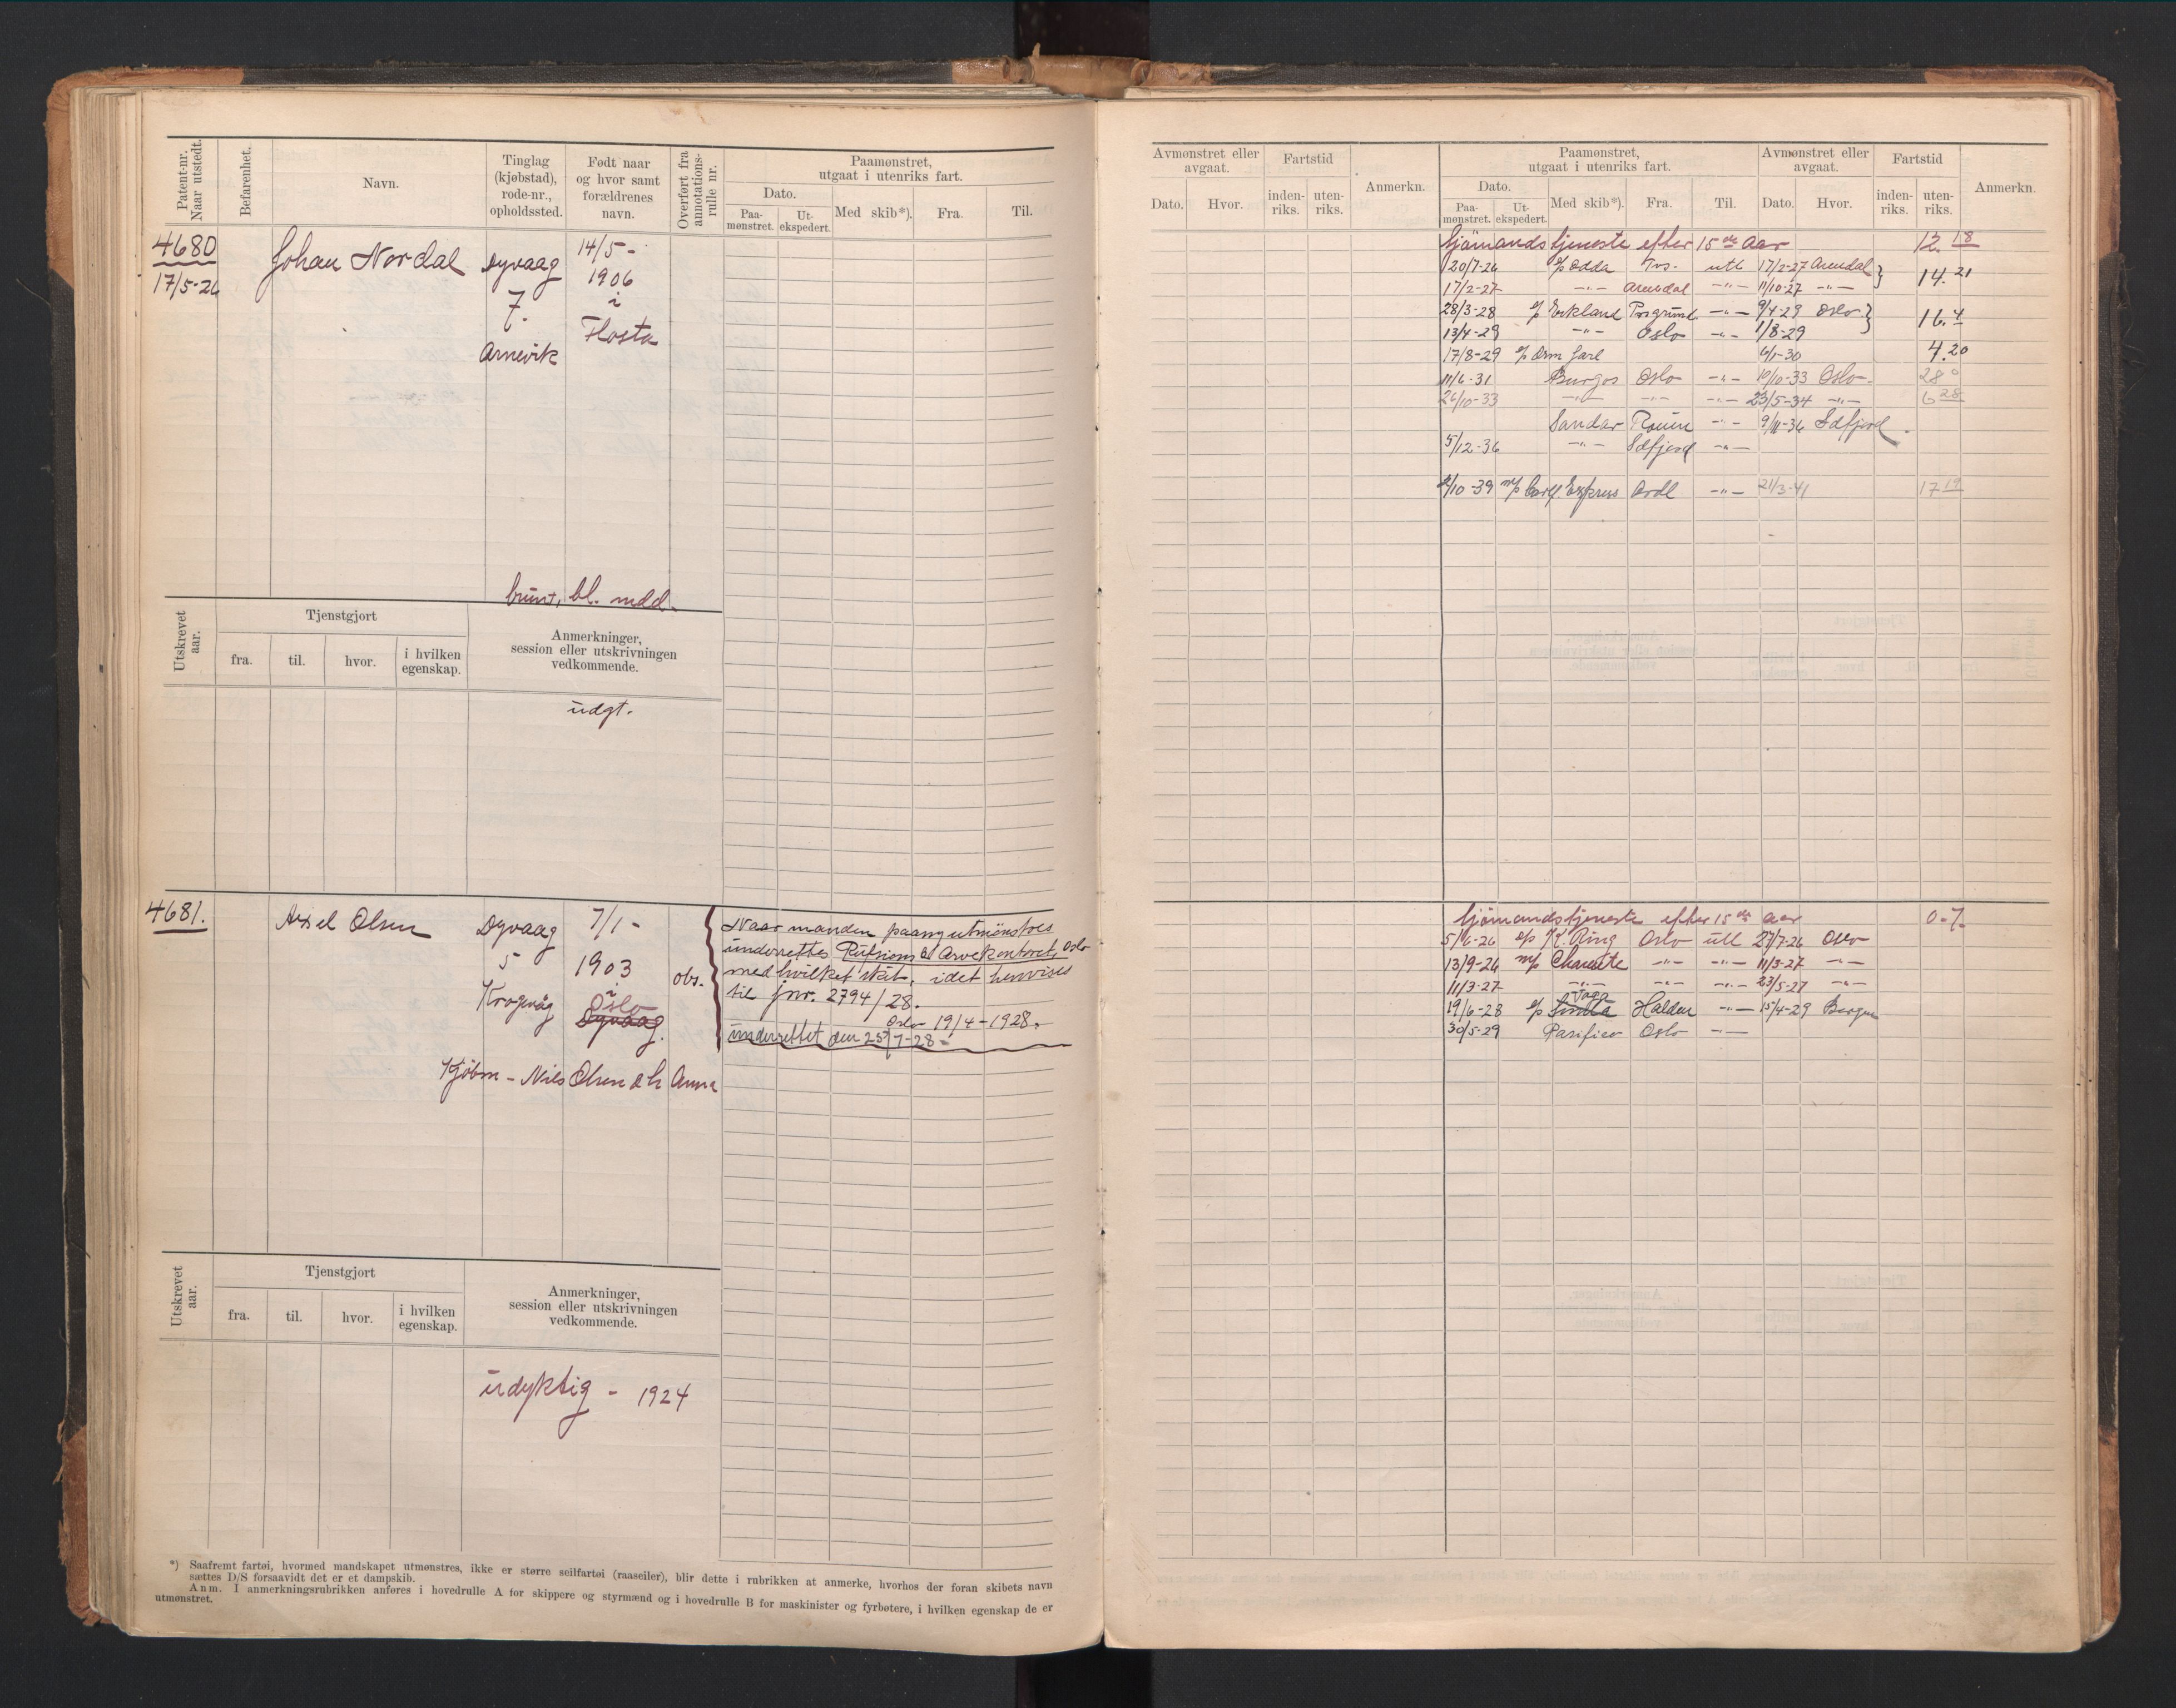 Patent-nr. Naar utstedt.
Befarenhet.
Navn.
Tinglag (kjøbstad), rode-nr., opholdssted.
Født naar og hvor samt forældrenes navn.
Overført fra annotations-rulle nr.
Paamønstret, utgaat i utenriks fart.
Dato.
Paa-mønstret.
Ut-ekspedert.
Med skib*).
Fra.
Til.
4680
17/5-26
Johan Nordal
Dyvaag
7.
Arnevik
14/5-
1906
i
Flosta
brunt, bl. mdd.
Utskrevet aar.
Tjenstgjort
fra.
til.
hvor.
i hvilken egenskap.
Anmerkninger, session eller utskrivningen vedkommende.
udgt.
4681.
Axel Olsen
Dyvaag
5
Krogvåg
7/1-
1903
i
Oslo
Dyvaag.
obs.
Kjöbm - Nils Olsen & h Anna
Naar manden paany utmönstres
underrettes Oslo
med hvilket skib, idet henvises
til jnr. 2794/28.
Oslo 19/4-1928.
underrettet den 25/7-28-
Utskrevet aar.
Tjenstgjort
fra.
til.
hvor.
i hvilken egenskap.
Anmerkninger, session eller utskrivningen vedkommende.
udyktig - 1924
*) Saafremt fartøi, hvormed mandskapet utmønstres, ikke er større seilfartøi (raaseiler), blir dette i rubrikken at anmerke, hvorhos der foran skibets navn
sættes D/S forsaavidt det er et dampskib.
Anm. I anmerkningsrubrikken anføres i hovedrulle A for skippere og styrmænd og i hovedrulle B for maskinister og fyrbøtere, i hvilken egenskap de er
utmønstret.
Avmønstret eller avgaat.
Dato.
Hvor.
Fartstid
inden-riks.
uten-riks.
Anmerkn.
Paamønstret, utgaat i utenriks fart.
Dato.
Paa-mønstret.
Ut-ekspedert.
Med skib*).
Fra.
Til.
Avmønstret eller avgaat.
Dato.
Hvor.
Fartstid
inden-riks.
uten-riks.
Anmerkn.
Sjömandstjeneste efter 15de aar 12.18
20/7-26 Odda Tvs. utl 17/2-27 Arendal } 14.21
17/2-27 -"- Arendal -"- 11/10-27 -"-
28/3-28 Eikland Porsgrund -"- 9/4-29 Oslo } 16.4
13/4-29 -"- Oslo -"- 1/8-29
17/8-29 Orm Jarl 6/1-30 4.20
11/6-31 Burgos Oslo -"- 10/10-33 Oslo 28 0
26/10-33 -"- -"- -"- 23/5-34 -"- 6 28
Sandar Rouen -"- 9/11-36 Sdfjord
5/12-36 -"- Sdfjord -"-
/10-39 Express Ardl -"- 21/3-41 17 19
Sjömandstjeneste efter 15de aar 0-7
5/6-26 K. Ring Oslo utl 27/7-26 Oslo
13/9-26 m/s Charente -"- -"- 11/3-27 -"-
11/3-27 -"- -"- -"- 23/5-27 -"-
19/6-28 Toga Simla Halden -"- 15/4-29 Bergen
30/5-29 Pacifico Oslo -"-